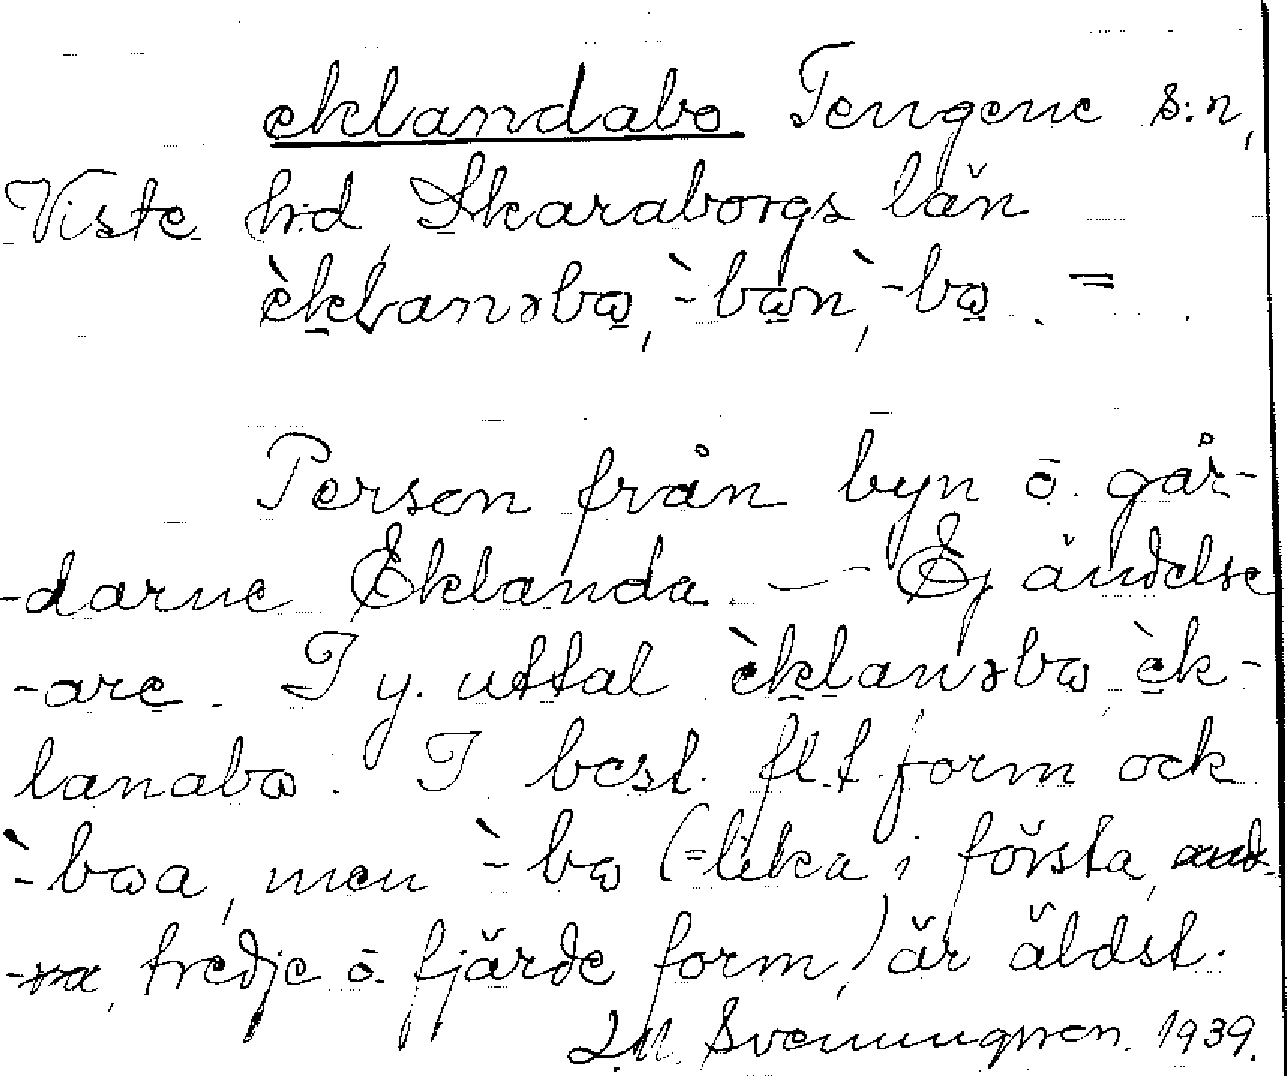 eklandabo Tengene s:n,
Viste h:d, Skaraborgs län
èklanəbω, `-bωn, `-bω. =
Person från byn o. går-
-darne Eklanda. — Ej ändelse
-are. I y. uttal èklanəbω, èk-
lanabω. I best. fl.t. form ock
`-bωa, men `-bω (=lika i första,
tredje o. fjärde form,) är äldst.
Svenungsson. 1939.